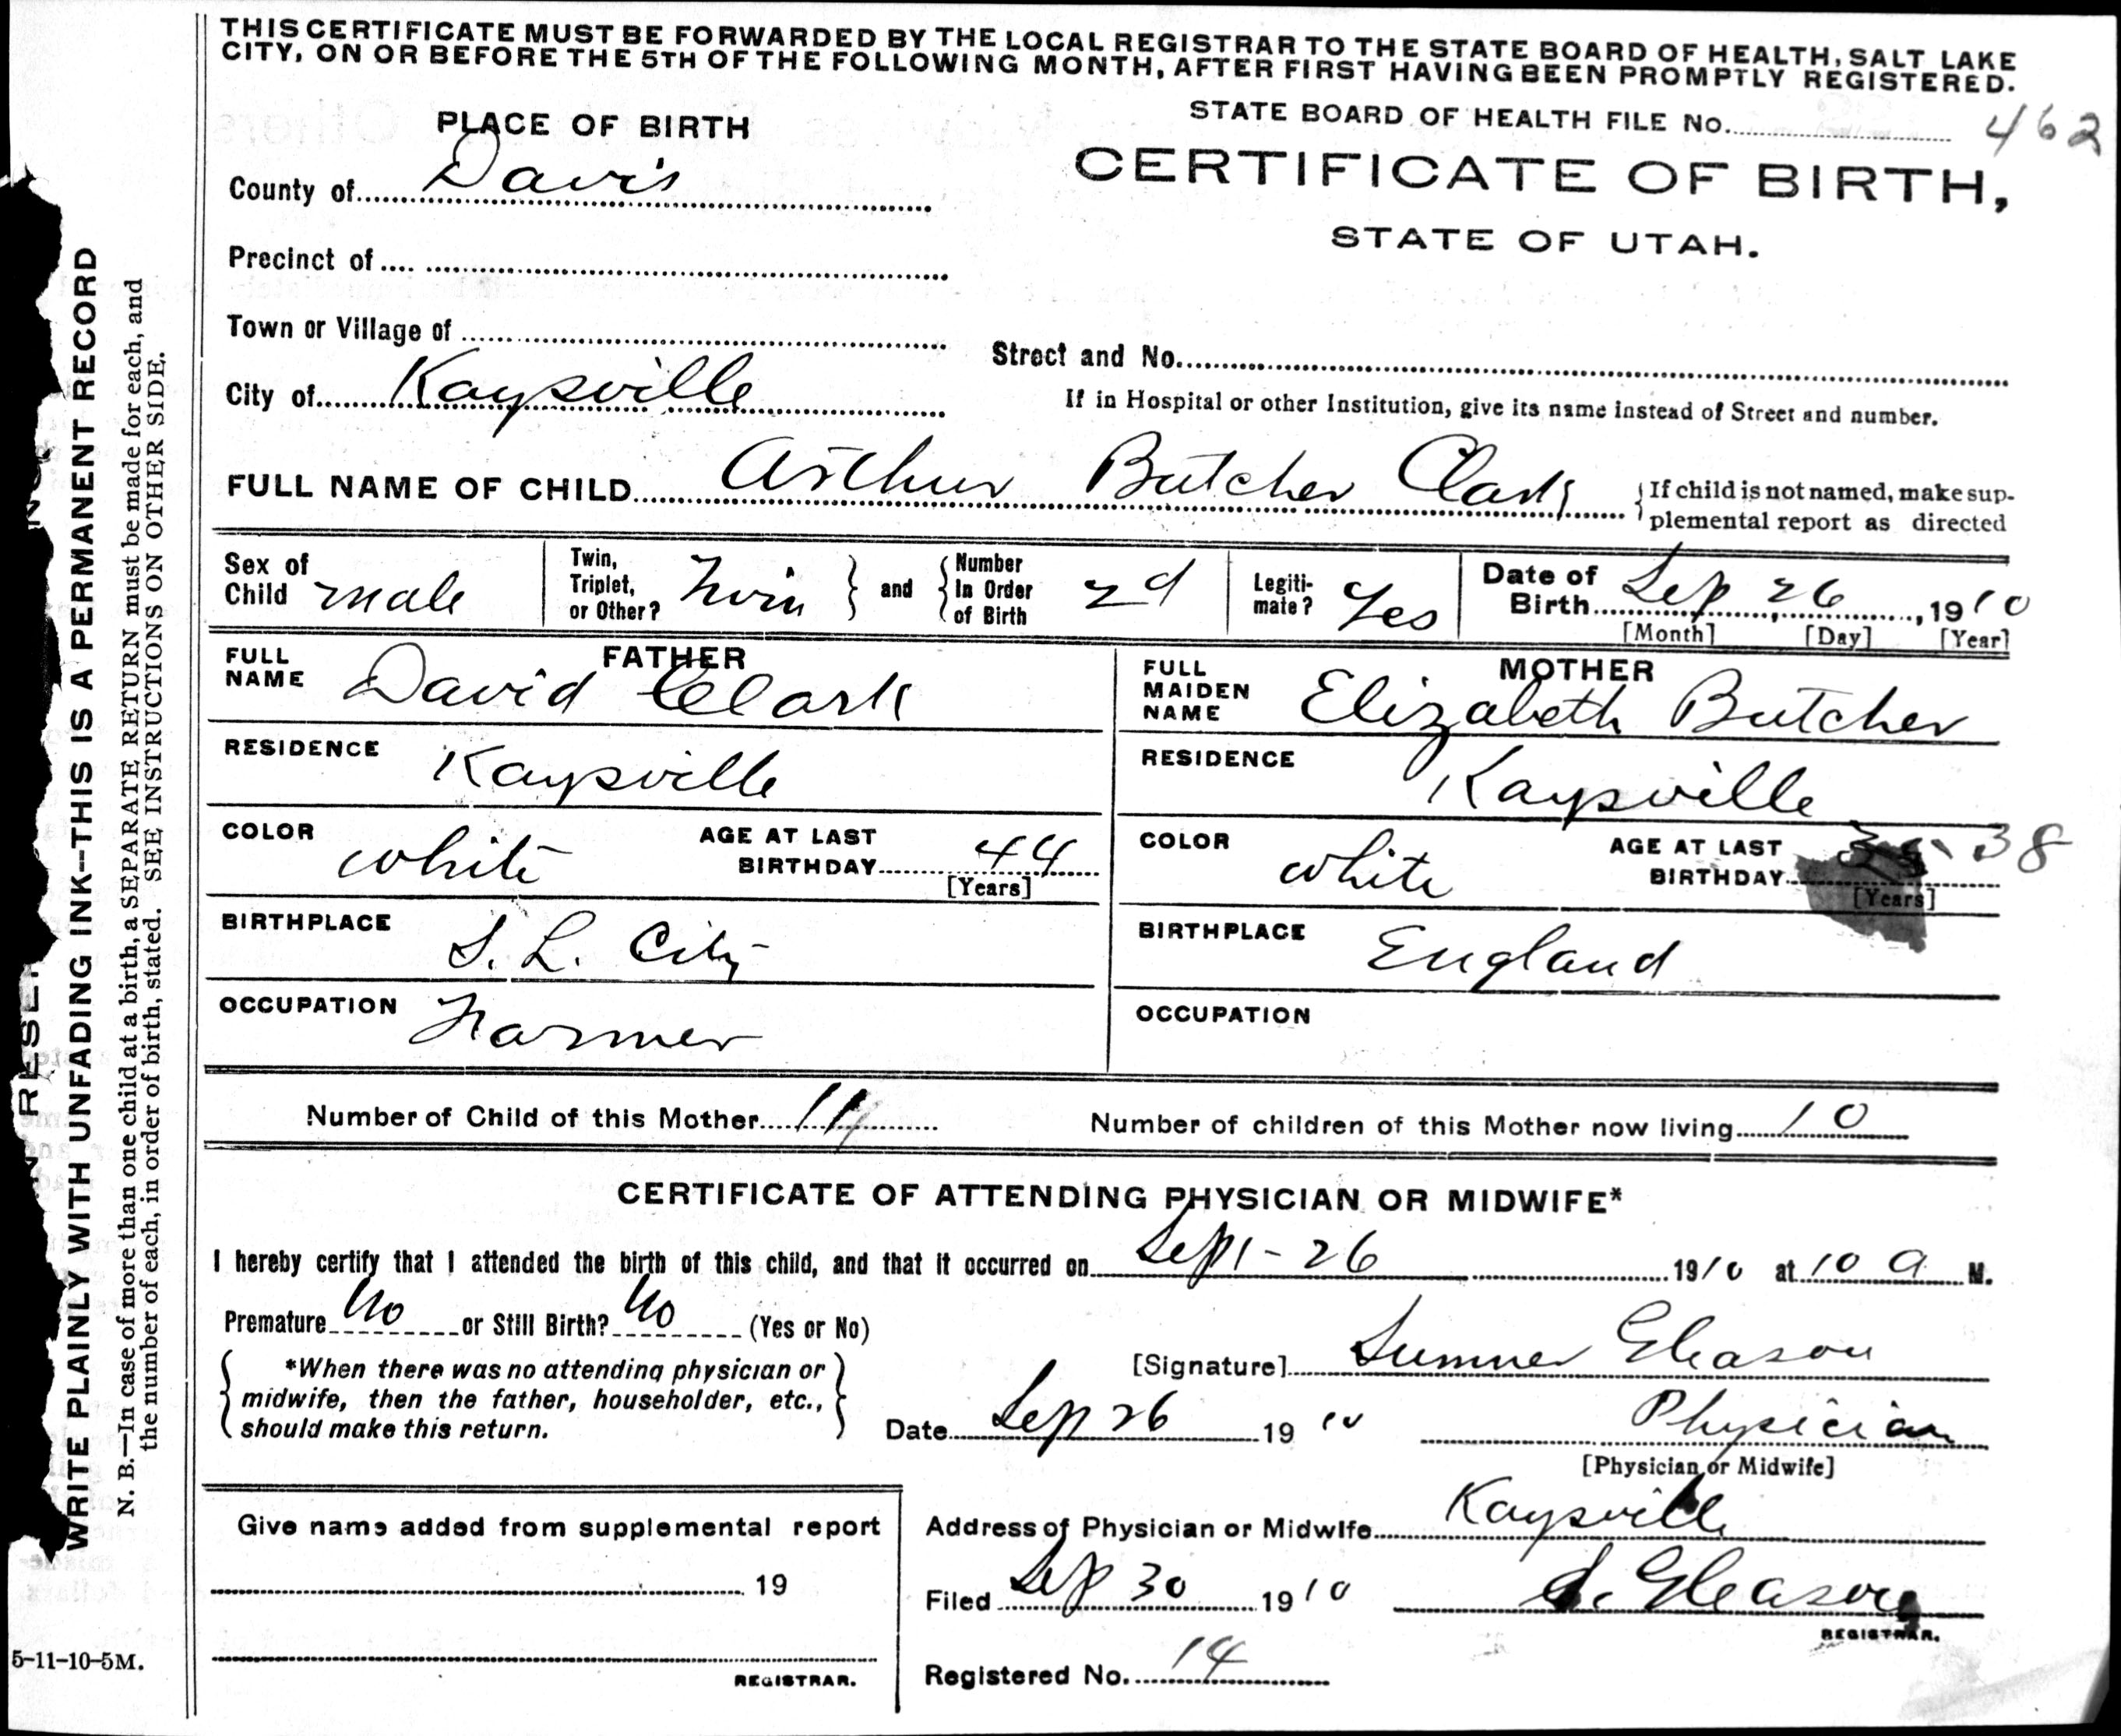 THIS CERTIFICATE MUST BE FORWARDED BY THE LOCAL REGISTRAR TO THE STATE BOARD OF HEALTH, SALT LAKE
CITY, ON OR BEFORE THE 5TH OF THE FOLLOWING MONTH, AFTER FIRST HAVING BEEN PROMPTLY REGISTERED.
STATE BOARD OF HEALTH FILE No. 462
CERTIFICATE OF BIRTH,
STATE OF UTAH.
PLACE OF BIRTH
County of Davis
Precinct of
Town or Village of
Street and No.
City of Kaysville
If in Hospital or other Institution, give its name instead of Street and number.
FULL NAME OF CHILD Arthur Butcher Clark
If child is not named, make sup-
plemental report as directed
Sex of Child male
Twin, Triplet, or Other? Twin
and
Number In Order of Birth 2d
Legiti-mate? Yes
Date of Birth Sep 26, 1910
[Month] [Day] [Year]
FATHER
FULL NAME David Clark
RESIDENCE Kaysville
COLOR white AGE AT LAST BIRTHDAY 44
[Years]
BIRTHPLACE S. L. City
OCCUPATION Farmer
MOTHER
FULL MAIDEN NAME Elizabeth Butcher
RESIDENCE Kaysville
COLOR white AGE AT LAST BIRTHDAY 38
[Years]
BIRTHPLACE England
OCCUPATION
Number of Child of this Mother 11
Number of children of this Mother now living 10
CERTIFICATE OF ATTENDING PHYSICIAN OR MIDWIFE*
I hereby certify that I attended the birth of this child, and that it occurred on Sept - 26 1910 at 10 a M.
Premature No or Still Birth? No (Yes or No)
*When there was no attending physician or
midwife, then the father, householder, etc.,
should make this return.
[Signature] Sumner Gleason
Date Sep 26 1910 Physician
[Physician or Midwife]
Give name added from supplemental report
19
REGISTRAR.
Address of Physician or Midwife Kaysville
Filed Sep 30 1910 S. Gleason
REGISTRAR.
Registered No. 14
WRITE PLAINLY WITH UNFADING INK--THIS IS A PERMANENT RECORD
N. B.—In case of more than one child at a birth, a SEPARATE RETURN must be made for each, and
the number of each, in order of birth, stated. SEE INSTRUCTIONS ON OTHER SIDE.
5-11-10-5M.